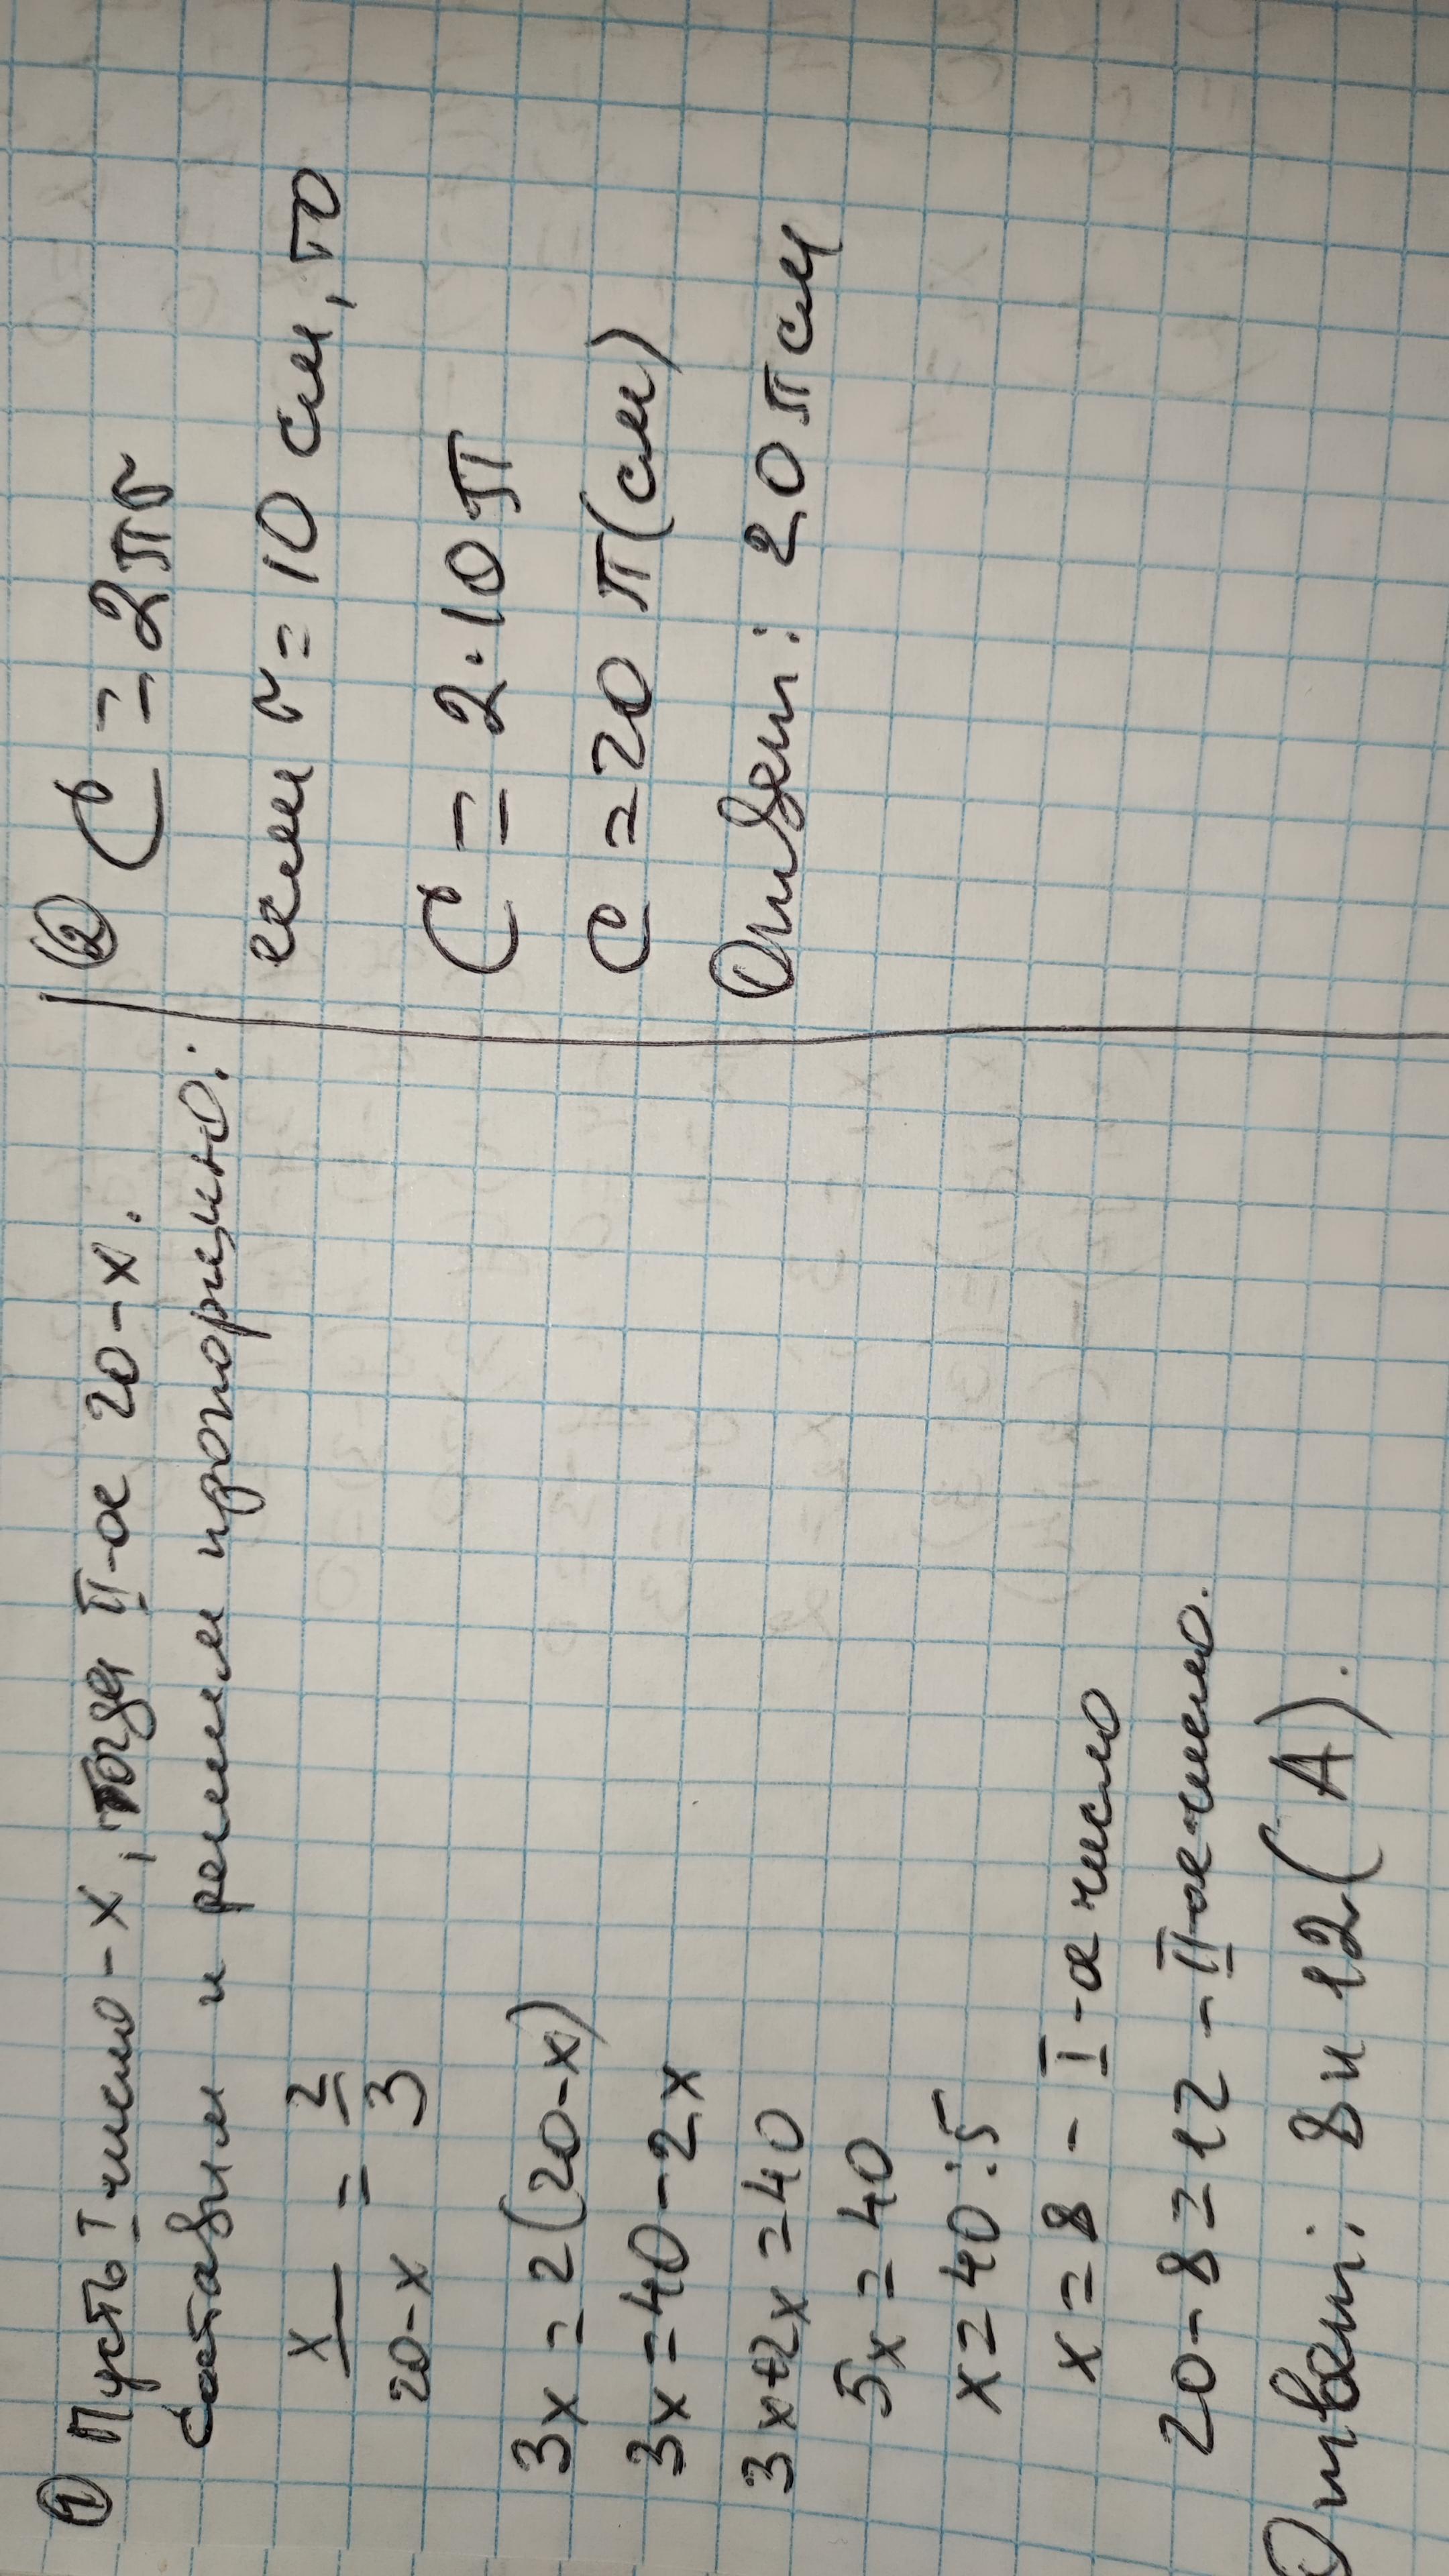 ① Пусть I число - x, тогда II-ое 20-x.
Составим и решим пропорцию:
x/20-x = 2/3
3x = 2(20-x)
3x = 40-2x
3x+2x = 40
5x = 40
x = 40:5
x = 8 - I-ое число
20-8 = 12 - II-ое число.
Ответ: 8 и 12 (А).
② C = 2πr
если r = 10 см, то
C = 2·10π
C = 20π(см)
Ответ: 20π см